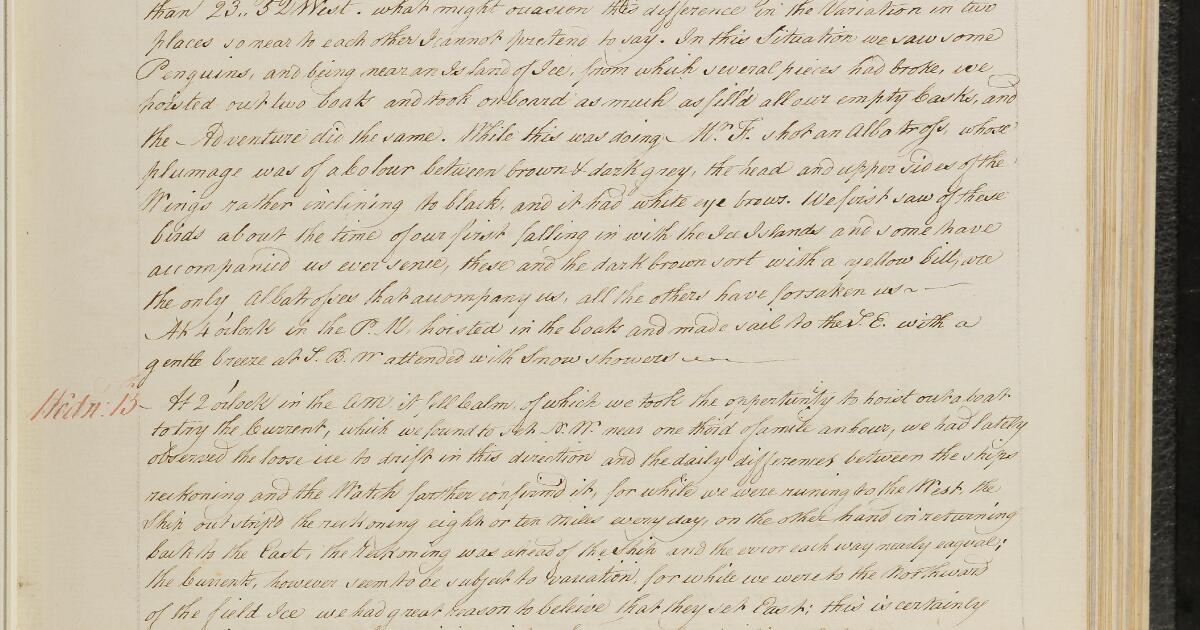 than 23.. 52 West. what might occasion this difference in the Variation in two
places so near to each other I cannot pretend to say. In this Situation we saw some
Penguins, and being near an Island of Ice, from which several pieces had broke, we
hoisted out two boats and took on board as much as fill'd all our empty Casks, and
the Adventure did the same. While this was doing Mr. F. shot an Albatross, whose
plumage was of a Colour between brown & dark grey, the head and upper sides of the
Wings rather inclining to black, and it had white eye brows. We first saw of these
birds about the time of our first falling in with the Ice Islands and some have
accompanied us ever sence, these and the dark brown sort with a yellow bill, are
the only Albatrosses that accompany us, all the others have forsaken us~
At 4 o'clock in the P.M. hoisted in the boats and made sail to the S.E. with a
gentle breeze at S. B. W attended with Snow showers
Wedn: 13 - At 2 o'clock in the AM it fell Calm, of which we took the oppertunity to hoist out a boat
to try the Current, which we found to set N.W. near one third of a mile an hour, we had lately
observed the loose ice to drift in this direction and the daily differences between the ships
reckoning and the Watch farther confirm'd it, for while we were runing to the West, the
Ship outstrip'd the reckoning eight or ten miles every day, on the other hand in returning
back to the East, the Reckoning was ahead of the Ship and the error each way nearly eaqual;
the Currents, however seem to be subject to variation, for while we were to the Northward
of the field Ice we had great reason to beleive that they set East; this is certainly